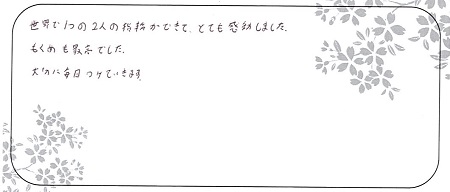 世界で1つの2人の指輪ができて、とても感動しました。
もくめも素敵でした。
大切に毎日つけていきます。